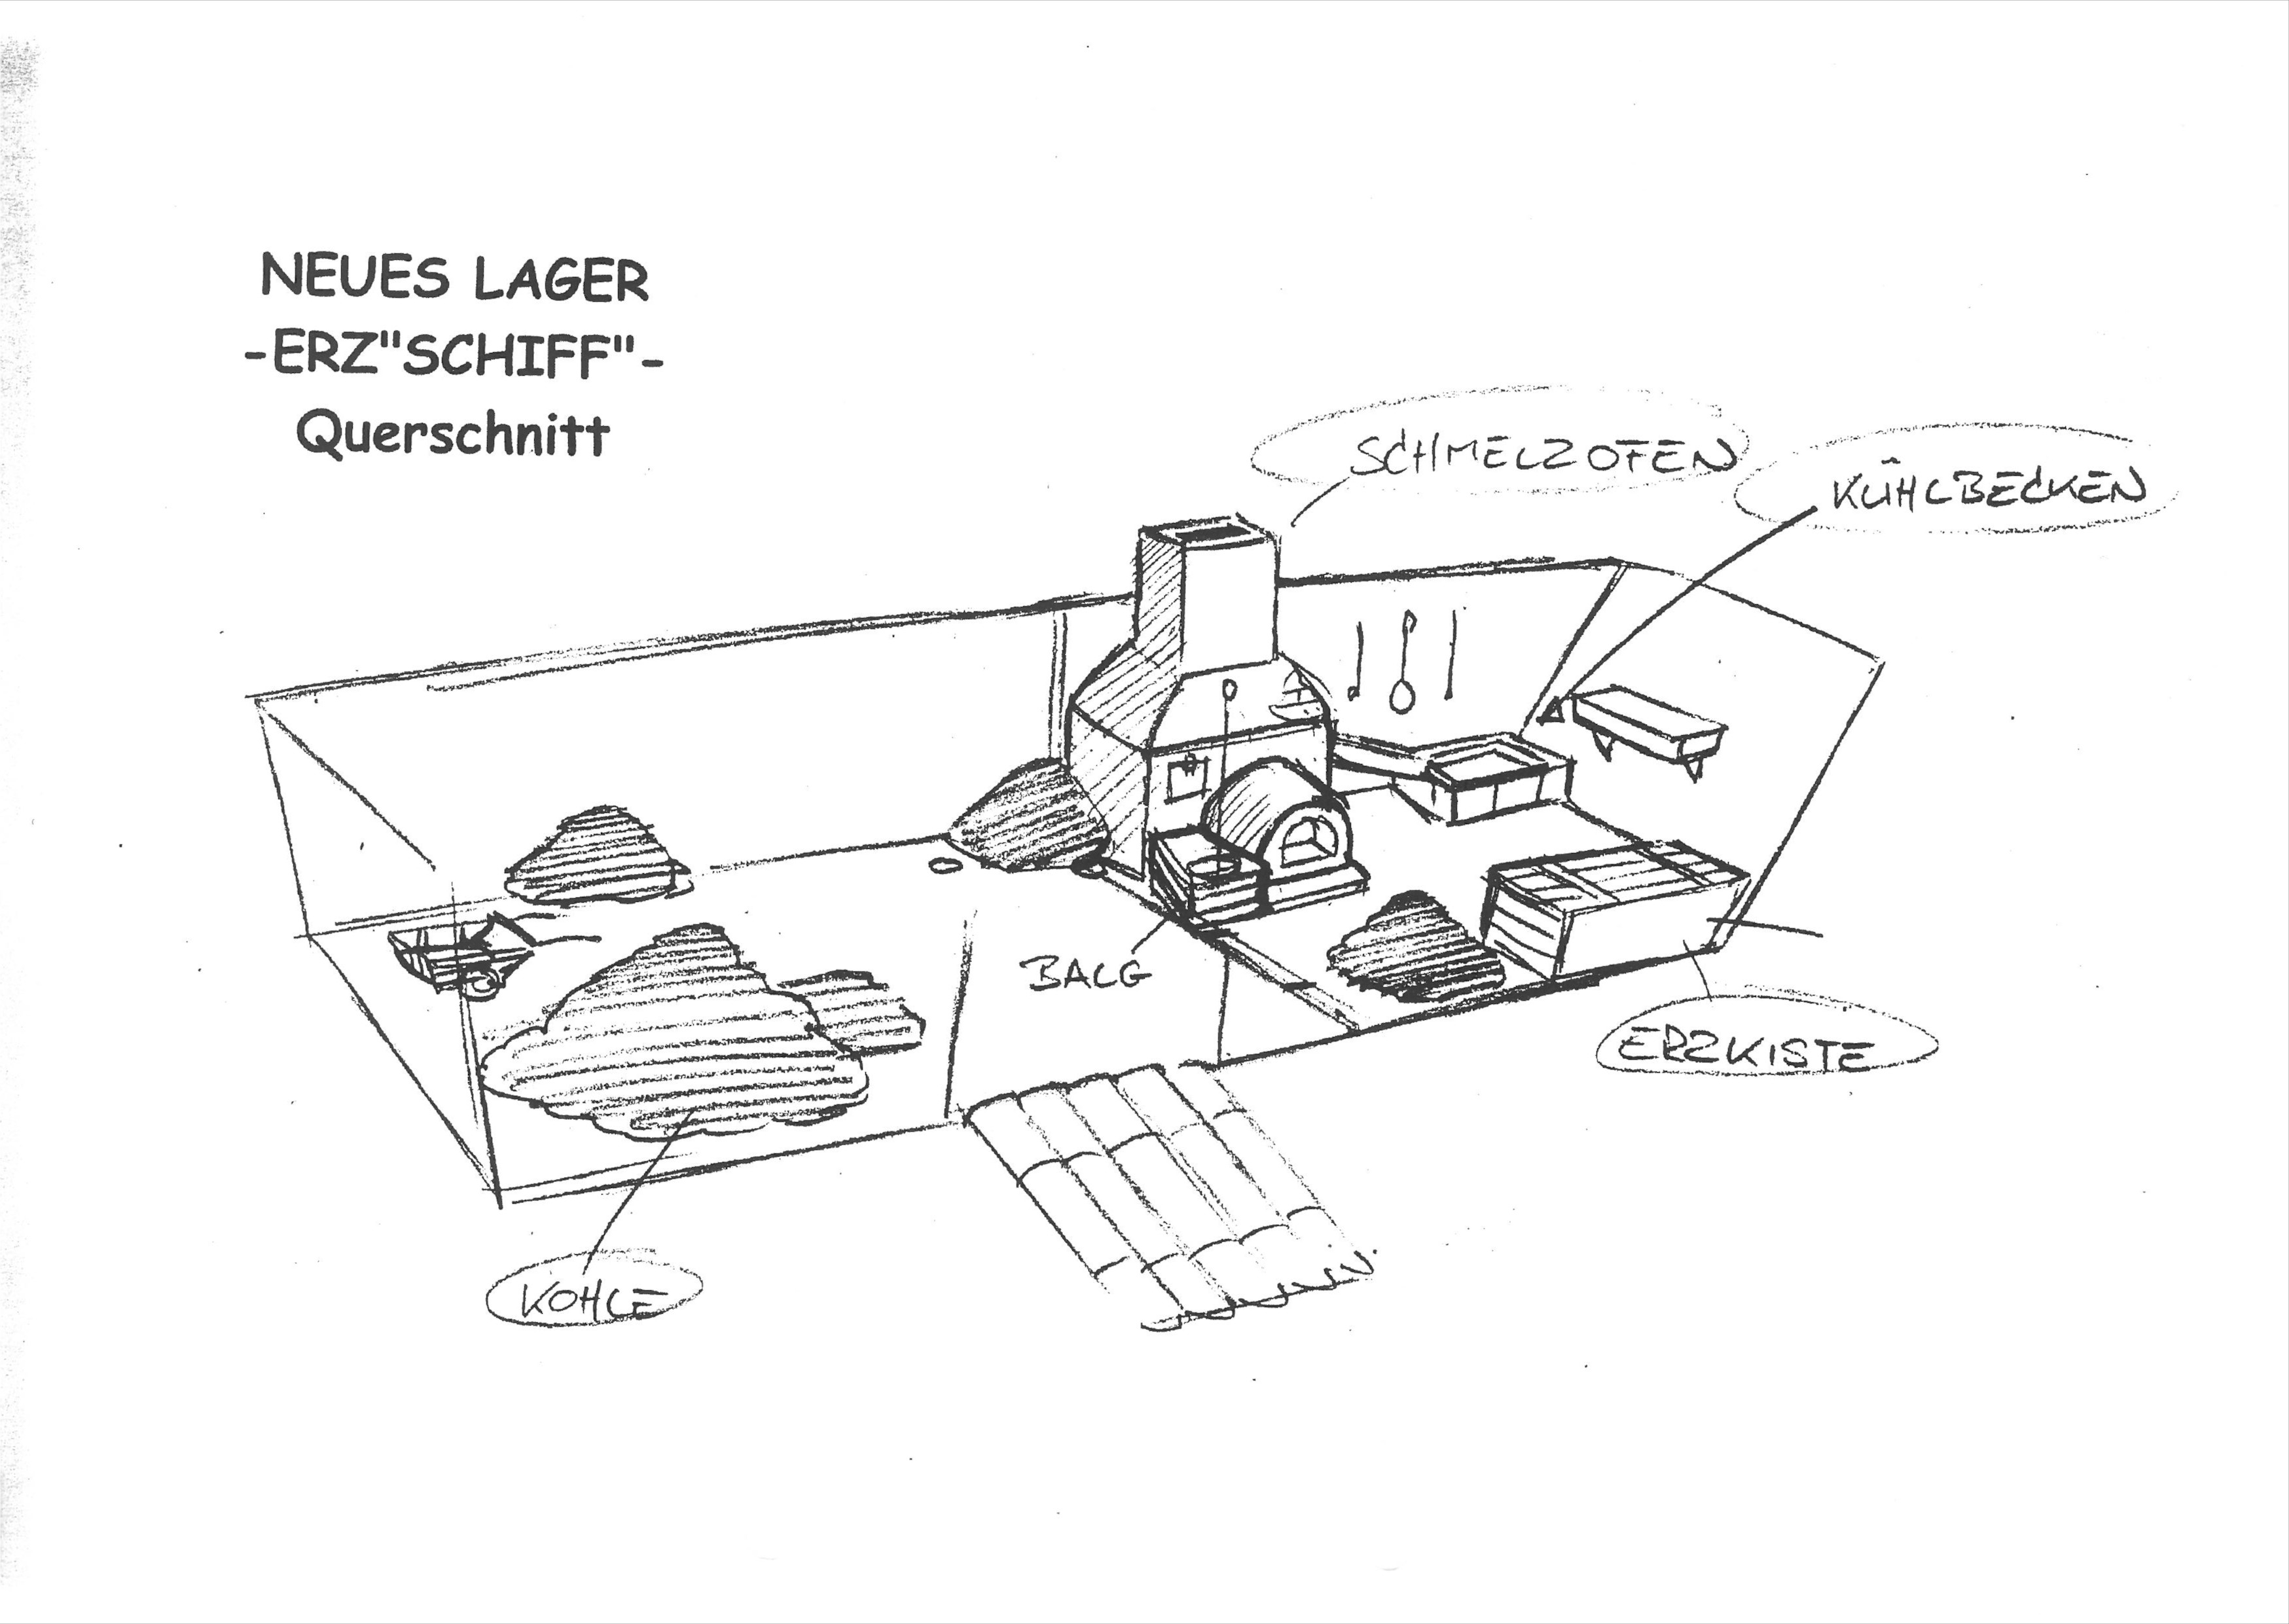 NEUES LAGER
-ERZ"SCHIFF"-
Querschnitt
SCHMELZOFEN
KÜHLBECKEN
BALG
ERZKISTE
KOHLE